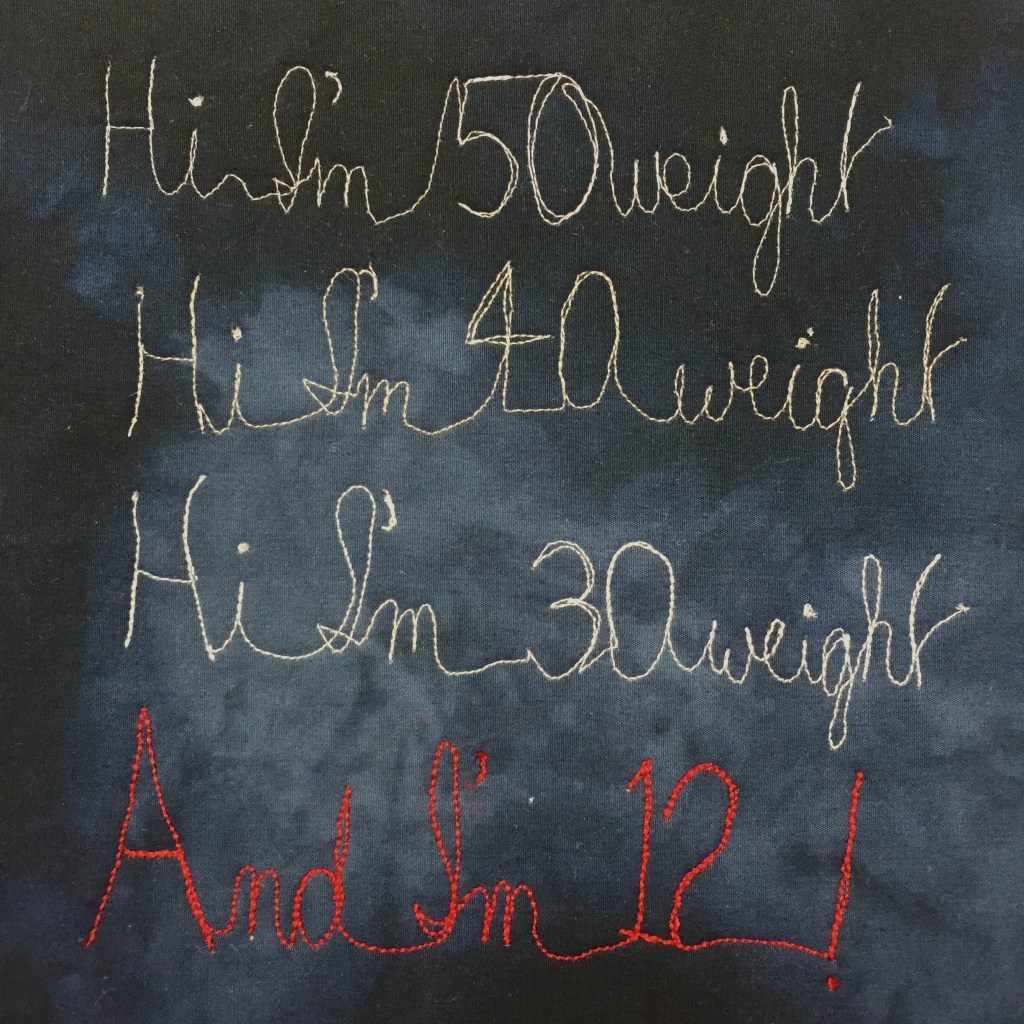 Hi I'm 50 weight
Hi I'm 40 weight
Hi I'm 30 weight
And I'm 12!